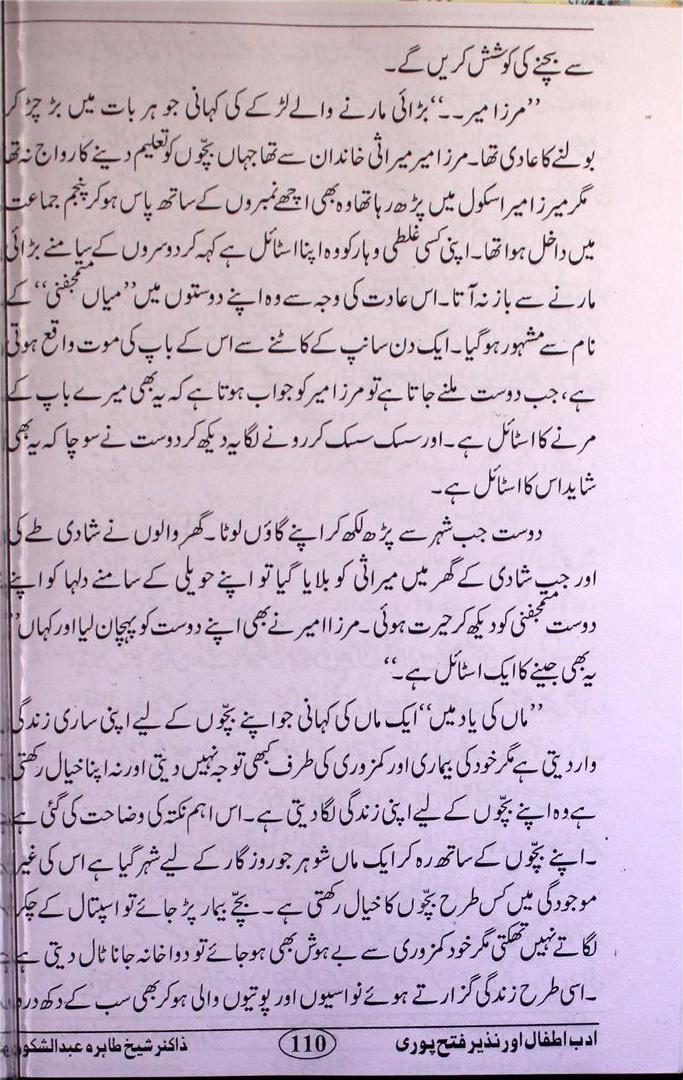 سے بچنے کی کوشش کریں گے۔
”مرزا میر۔۔“ بڑائی مارنے والے لڑکے کی کہانی جو ہر بات میں بڑ چڑ کر
بولنے کا عادی تھا۔ مرزا میر میراثی خاندان سے تھا جہاں بچّوں کو تعلیم دینے کا رواج نہ تھا
مگر میرزا میر اسکول میں پڑھ رہا تھا وہ بھی اچھے نمبروں کے ساتھ پاس ہو کر پنجم جماعت
میں داخل ہوا تھا۔ اپنی کسی غلطی و ہار کو وہ اپنا اسٹائل ہے کہہ کر دوسروں کے سامنے بڑائی
مارنے سے باز نہ آتا۔ اس عادت کی وجہ سے وہ اپنے دوستوں میں ”میاں“ کے
نام سے مشہور ہو گیا۔ ایک دن سانپ کے کاٹنے سے اس کے باپ کی موت واقع ہوتی
ہے، جب دوست ملنے جاتا ہے تو مرزا میر کو جواب ہوتا ہے کہ یہ بھی میرے باپ کے
مرنے کا اسٹائل ہے۔ اور سسک سسک کر رونے لگا یہ دیکھ کر دوست نے سوچا کہ یہ بھی
شاید اس کا اسٹائل ہے۔
دوست جب شہر سے پڑھ لکھ کر اپنے گاؤں لوٹا۔ گھر والوں نے شادی طے کی
اور جب شادی کے گھر میں میراثی کو بلایا گیا تو اپنے حویلی کے سامنے دلہا کو اپنے
دوست کو دیکھ کر حیرت ہوئی۔ مرزا امیر نے بھی اپنے دوست کو پہچان لیا اور کہاں ”
یہ بھی جینے کا ایک اسٹائل ہے۔“
”ماں کی یاد میں“ ایک ماں کی کہانی جو اپنے بچّوں کے لیے اپنی ساری زندگی
وار دیتی ہے مگر خود کی بیماری اور کمزوری کی طرف کبھی توجہ نہیں دیتی اور نہ اپنا خیال رکھتی
ہے وہ اپنے بچّوں کے لیے اپنی زندگی لگا دیتی ہے۔ اس اہم نکتہ کی وضاحت کی گئی ہے
۔ اپنے بچّوں کے ساتھ رہ کر ایک ماں شوہر جو روز گار کے لیے شہر گیا ہے اس کی غیر
موجودگی میں کس طرح بچّوں کا خیال رکھتی ہے۔ بچّے بیمار پڑ جائے تو اسپتال کے چکر
لگاتے نہیں تھکتی مگر خود کمزوری سے بے ہوش بھی ہو جائے تو دوا خانہ جانا ٹال دیتی ہے
۔ اسی طرح زندگی گزارتے ہوئے نواسیوں اور پوتیوں والی ہو کر بھی سب کے دکھ درد
ادب اطفال اور نذیر فتح پوری 110 ڈاکٹر شیخ طاہرہ عبدالشکور